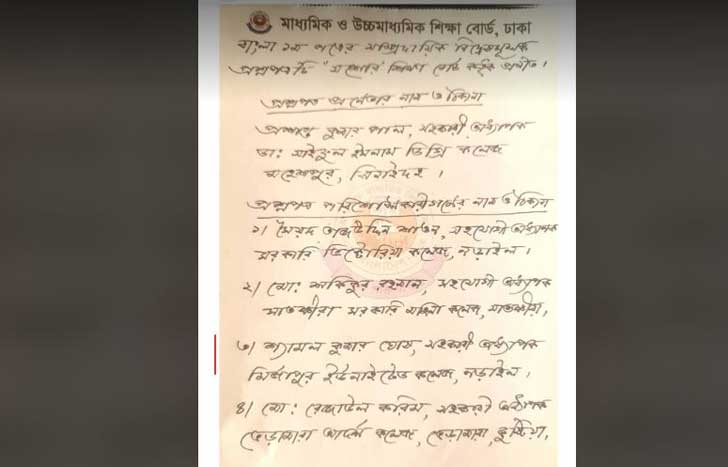 মাধ্যমিক ও উচ্চমাধ্যমিক শিক্ষা বোর্ড, ঢাকা
বাংলা ১ম পত্রের সাম্প্রদায়িক বিদ্বেষমূলক
প্রশ্নপত্রটি "যশোর" শিক্ষা বোর্ড কর্তৃক প্রণীত।
প্রশ্নপত্র প্রণেতার নাম ও ঠিকানা
প্রশান্ত কুমার পাল, সহকারী অধ্যাপক
ডা: সাইফুল ইসলাম ডিগ্রি কলেজ
মহেশপুর, ঝিনাইদহ।
প্রশ্নপত্র পরিশোধনকারীগণের নাম ও ঠিকানা
১) সৈয়দ তাজউদ্দিন শাওন, সহযোগী অধ্যাপক
সরকারি ভিক্টোরিয়া কলেজ, নড়াইল।
২) মো: শফিকুর রহমান, সহযোগী অধ্যাপক
সাতক্ষীরা সরকারি মহিলা কলেজ, সাতক্ষীরা,
৩) শ্যামল কুমার ঘোষ, সহকারী অধ্যাপক
মির্জাপুর ইউনাইটেড কলেজ, নড়াইল,
৪) মো: রেজাউল করিম, সহকারী অধ্যাপক
ভেড়ামারা আদর্শ কলেজ, ভেড়ামারা, কুষ্টিয়া,